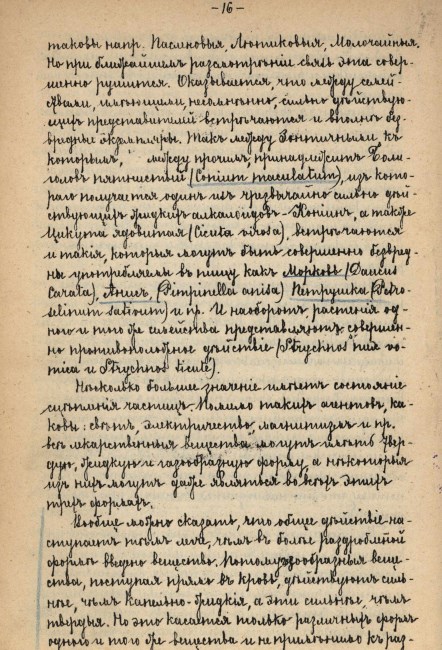 -16-
таковы напр. Пасленовыя, Лютиковыя, Молочайныя.
Но при ближайшемъ разсмотрѣніи связь эта совер-
шенно рушится. Оказывается, что между семей-
ствами, имѣющими, несомнѣнно, сильно дѣйствую-
щихъ представителей встрѣчаются и вполнѣ без-
вредные экземпляры. Такъ между Зонтичными къ
которымъ, между прочимъ, принадлежитъ Боли-
головъ пятнистый (Conium maculatum), изъ кото-
раго получается одинъ изъ чрезвычайно сильно дѣй-
ствующихъ жидкихъ алкалоидовъ - Коніинъ, а также
Цикута ядовитая (Cicuta virosa), встрѣчаются
и такія, которыя могутъ быть совершенно безвред-
ны употребляемы въ пищу какъ Морковь (Daucus
Carata), Анисъ, (Pimpinella anisa) Петрушка (Petro-
selinum sativum) и пр. И наоборотъ растенія од-
ного и того же семейства представляютъ совершен-
но противоположное дѣйствіе (Strychnos nux vo-
mica и Strychnos tieuté).
Нѣсколько большее значеніе имѣетъ состояніе
сцѣпленія частицъ. Помимо такихъ агентовъ, ка-
ковы: свѣтъ, электричество, магнитизмъ и пр.
всѣ лекарственныя вещества могутъ имѣть твер-
дую, жидкую и газообразную форму, а нѣкоторыя
изъ нихъ могутъ даже являться во всѣхъ этихъ
трехъ формахъ.
Вообще можно сказать, что общее дѣйствіе на-
ступаетъ тѣмъ легче, чѣмъ въ болѣе раздробленной
формѣ введено вещество. Потому газообразныя веще-
ства, поступая прямо въ кровь, дѣйствуютъ силь-
нѣе, чѣмъ капельно-жидкія, а эти сильнѣе, чѣмъ
твердыя. Но это касается только различныхъ формъ
одного и того же вещества и не примѣнимо къ раз-